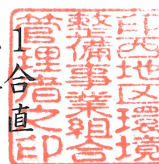 印西地区環境
整備事業組合
管理者之印
1合直